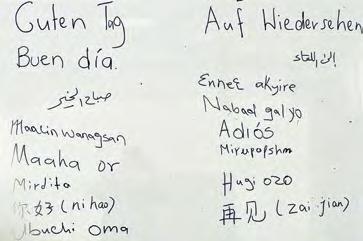 Guten Tag
Buen día.
صباح الخير
Maalin wanagsan
Maaha or
Mirdita
你好 (ni hao)
Ubuchi oma
Auf Wiedersehen
إلى اللقاء
Ennee akyire
Nabad galyo
Adiós
Mirupafshm
Hugi ozo
再见 (zai jian)